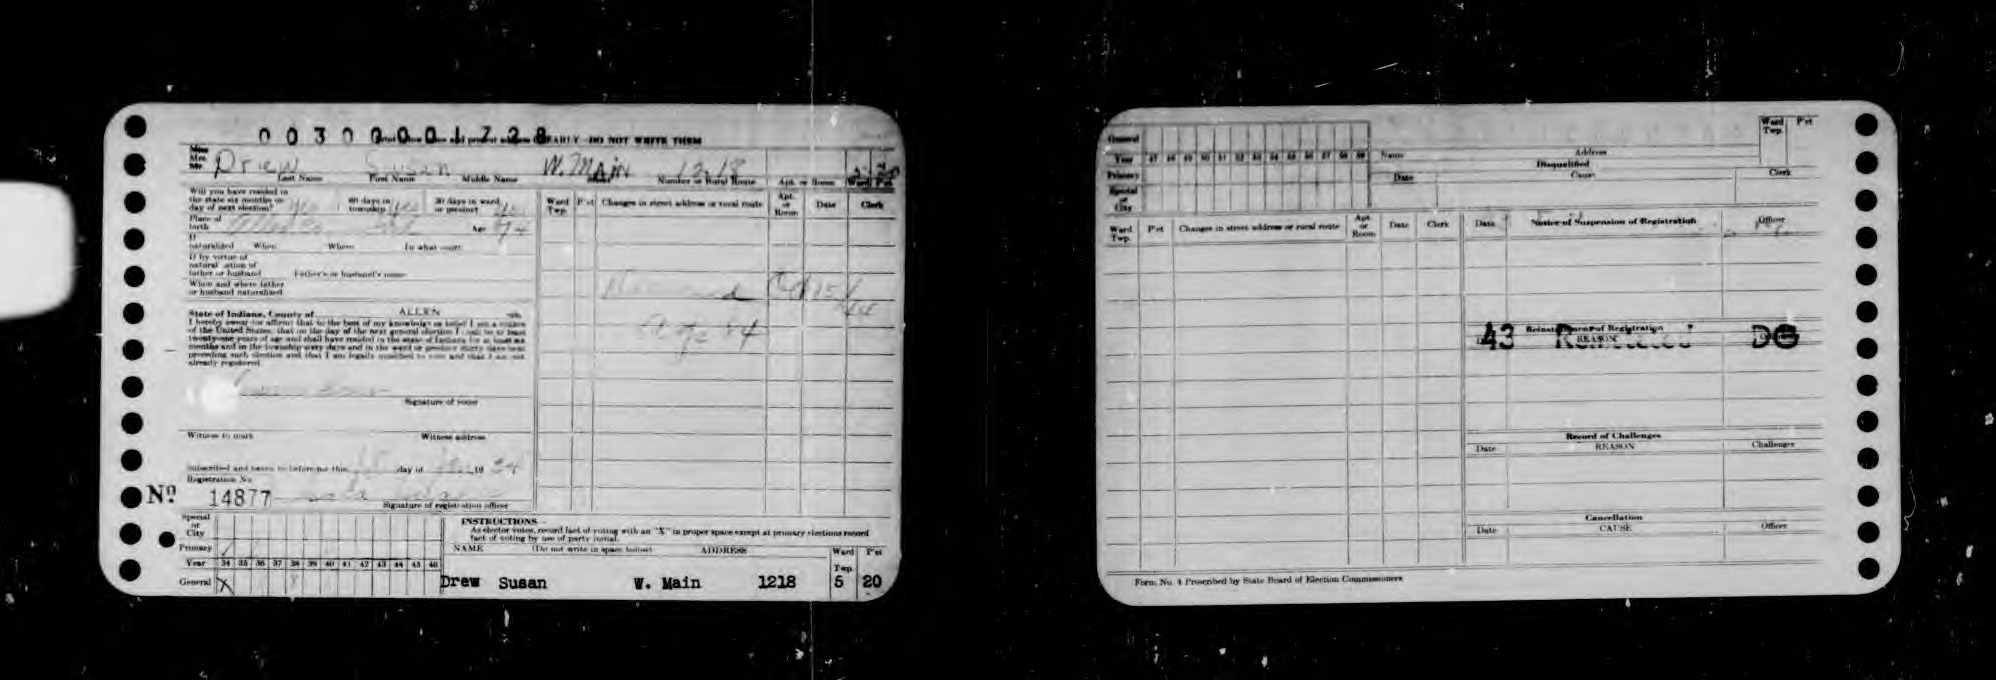 0030 0001728
EARLY - DO NOT WRITE THEM
Miss
Mrs.
Mr. Drew Susan W. MAIN 1218
Last Name First Name Middle Name Street Number or Rural Route Apt. or Room Ward Pct
Will you have resided in
the state six months on
day of next election? Yes 60 days in
township Yes 30 days in ward
or precinct
Place of
birth Age 74
If
naturalized When Where In what court
If by virtue of
father or husband Father's or husband's name
When and where father
or husband naturalized
State of Indiana, County of ALLEN ss.
I hereby swear (or affirm) that to the best of my knowledge or belief I am a citizen
of the United States, that on the day of the next general election I shall be at least
twenty-one years of age and shall have resided in the state of Indiana for at least six
months and in the township sixty days and in the ward or precinct thirty days next
preceding such election and that I am legally entitled to vote and that I am not
already registered.
Signature of voter
Witness to mark Witness address
Subscribed and sworn to before me this day of 19 34
Registration No.
No. 14877
Signature of registration officer
Ward
Twp. P'ct Changes in street address or rural route Apt.
or
Room Date Clerk
age 84
Special
or
City
Primary
Year 34 35 36 37 38 39 40 41 42 43 44 45 46
General X
INSTRUCTIONS
As elector votes, record fact of voting with an "X" in proper space except at primary elections record
fact of voting by use of party initial.
NAME (Do not write in space below) ADDRESS Ward
Twp. P'ct
Drew Susan W. Main 1218 5 20
General
Year 47 48 49 50 51 52 53 54 55 56 57 58 59
Primary
Special
or
City
Name Address Ward
Twp. P'ct
Disqualified
Date Cause Clerk
Ward
Twp. P'ct Changes in street address or rural route Apt.
or
Room Date Clerk
Date Notice of Suspension of Registration Officer
Reinstatement of Registration
REASON
43 DG
Record of Challenges
Date REASON Challenger
Cancellation
Date CAUSE Officer
Form No. 4 Prescribed by State Board of Election Commissioners